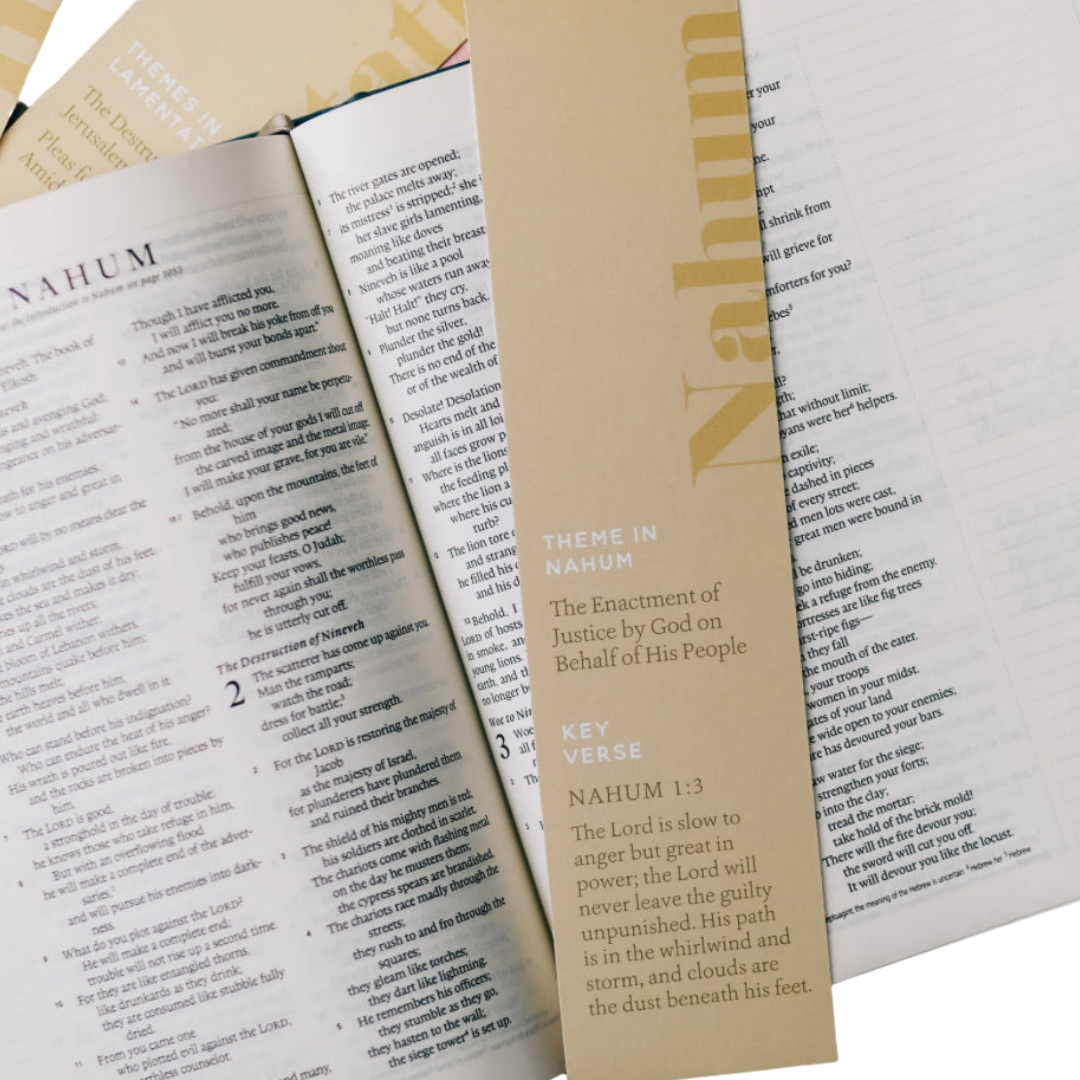 THEMES IN
LAMENTAT
The Destru
Jerusalem
Pleas fo
Amid
NAHUM
the Introduction to Nahum see page 1053
neveh. The book of
Elkosh.
s and avenging God;
nging and wrathful;
ngeance on his adversar-
rath for his enemies.
ow to anger and great in
ORD will by no means clear the
in whirlwind and storm,
e clouds are the dust of his feet.
es the sea and makes it dry;
ries up all the rivers;
and Carmel wither;
bloom of Lebanon withers.
mountains quake before him;
he hills melt;
earth heaves before him,
the world and all who dwell in it.
Who can stand before his indignation?
Who can endure the heat of his anger?
His wrath is poured out like fire,
and the rocks are broken into pieces by
him.
7 The LORD is good,
a stronghold in the day of trouble;
he knows those who take refuge in him.
8 But with an overflowing flood
he will make a complete end of the adver-
saries,
and will pursue his enemies into dark-
ness.
9 What do you plot against the LORD?
He will make a complete end;
trouble will not rise up a second time.
10 For they are like entangled thorns,
like drunkards as they drink;
they are consumed like stubble fully
dried.
11 From you came one
who plotted evil against the LORD,
rthless counselor.
and many,
Though I have afflicted you,
I will afflict you no more.
13 And now I will break his yoke from off you
and will burst your bonds apart."
14 The LORD has given commandment about
you:
"No more shall your name be perpetu-
ated;
from the house of your gods I will cut off
the carved image and the metal image.
I will make your grave, for you are vile."
Behold, upon the mountains, the feet of
him
who brings good news,
who publishes peace!
Keep your feasts, O Judah;
fulfill your vows,
for never again shall the worthless pass
through you;
he is utterly cut off.
The Destruction of Nineveh
2 The scatterer has come up against you.
Man the ramparts;
watch the road;
dress for battle;
collect all your strength.
2 For the LORD is restoring the majesty of
Jacob
as the majesty of Israel,
for plunderers have plundered them
and ruined their branches.
3 The shield of his mighty men is red;
his soldiers are clothed in scarlet.
The chariots come with flashing metal
on the day he musters them;
the cypress spears are brandished.
4 The chariots race madly through the
streets;
they rush to and fro through the
squares;
they gleam like torches;
they dart like lightning.
5 He remembers his officers;
they stumble as they go,
they hasten to the wall;
the siege tower is set up.
6 The river gates are opened;
the palace melts away;
7 its mistress is stripped; she i
her slave girls lamenting,
moaning like doves
and beating their breast
8 Nineveh is like a pool
whose waters run away
"Halt! Halt!" they cry,
but none turns back.
9 Plunder the silver,
plunder the gold!
There is no end of the
or of the wealth of
Desolate! Desolation
Hearts melt and
anguish is in all loi
all faces grow p
Where is the lions
the feeding pl
where the lion a
where his cu
turb?
The lion tore
and strang
he filled his c
and his d
13 Behold, I
LORD of hosts
in smoke, an
young lions.
earth, and th
no longer b
Woe to Nin
3 Woe
all f
Th
Nahum
THEME IN
NAHUM
The Enactment of
Justice by God on
Behalf of His People
KEY
VERSE
NAHUM 1:3
The Lord is slow to
anger but great in
power; the Lord will
never leave the guilty
unpunished. His path
is in the whirlwind and
storm, and clouds are
the dust beneath his feet.
r your
your
ne.
mpt
ll shrink from
will grieve for
mforters for you?
ebes
l?
th;
hat without limit;
yans were her helpers.
exile;
captivity;
dashed in pieces
f every street;
d men lots were cast,
great men were bound in
be drunken;
go into hiding;
ek a refuge from the enemy.
ortresses are like fig trees
irst-ripe figs—
they fall
the mouth of the eater.
your troops
women in your midst.
ates of your land
wide open to your enemies;
re has devoured your bars.
aw water for the siege;
strengthen your forts;
o into the clay;
tread the mortar;
take hold of the brick mold!
There will the fire devour you;
the sword will cut you off.
It will devour you like the locust.
eptuagint; the meaning of the Hebrew is uncertain 6 Hebrew her 7 Hebrew